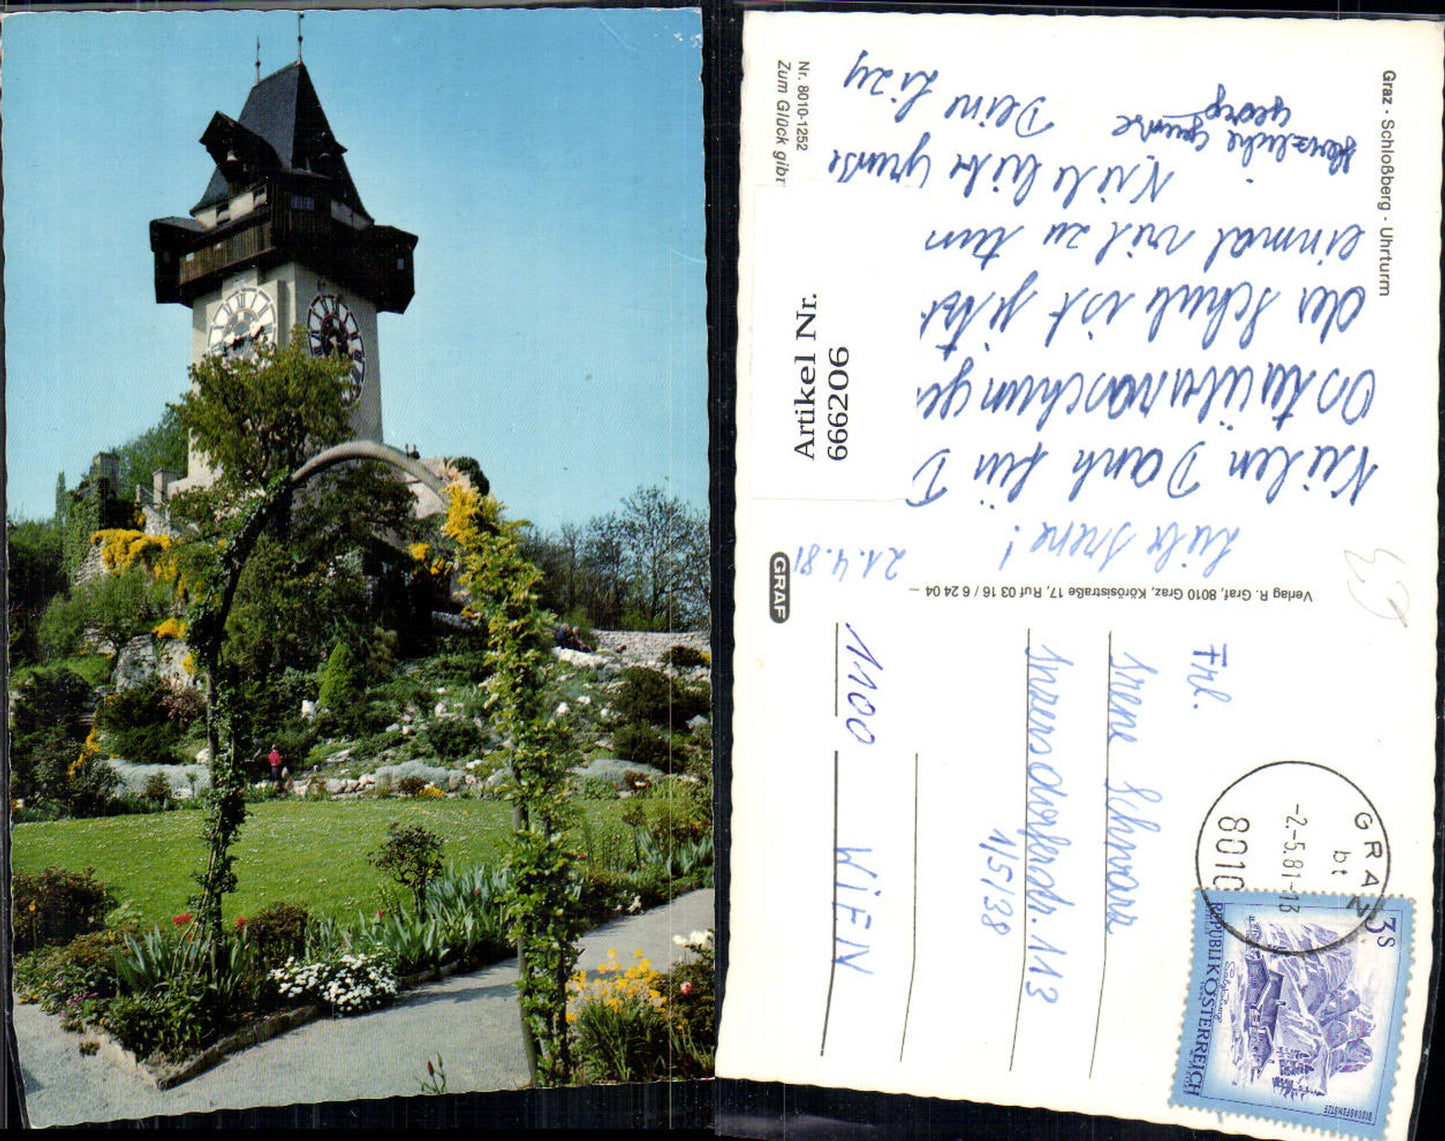 Graz - Schloßberg - Uhrturm
Liebe Irene!
21.4.81
Vielen Dank für D
Osterüberraschungen
der Schule ist jetzt
einmal viel zu tun
Viele liebe Grüße
Deine Lizy
Herzliche Grüsse
Georg
Nr. 8010-1252
Zum Glück gibt
Artikel Nr.
666206
GRAF
Verlag R. Graf, 8010 Graz, Körösistraße 17, Ruf 03 16 / 6 24 04
Frl.
Irene Schwarz
113
1/5/38
1100 WIEN
GRAZ
bt
-2.-5.81-13
8010
3S
REPUBLIK ÖSTERREICH
BISCHOFSMÜTZE